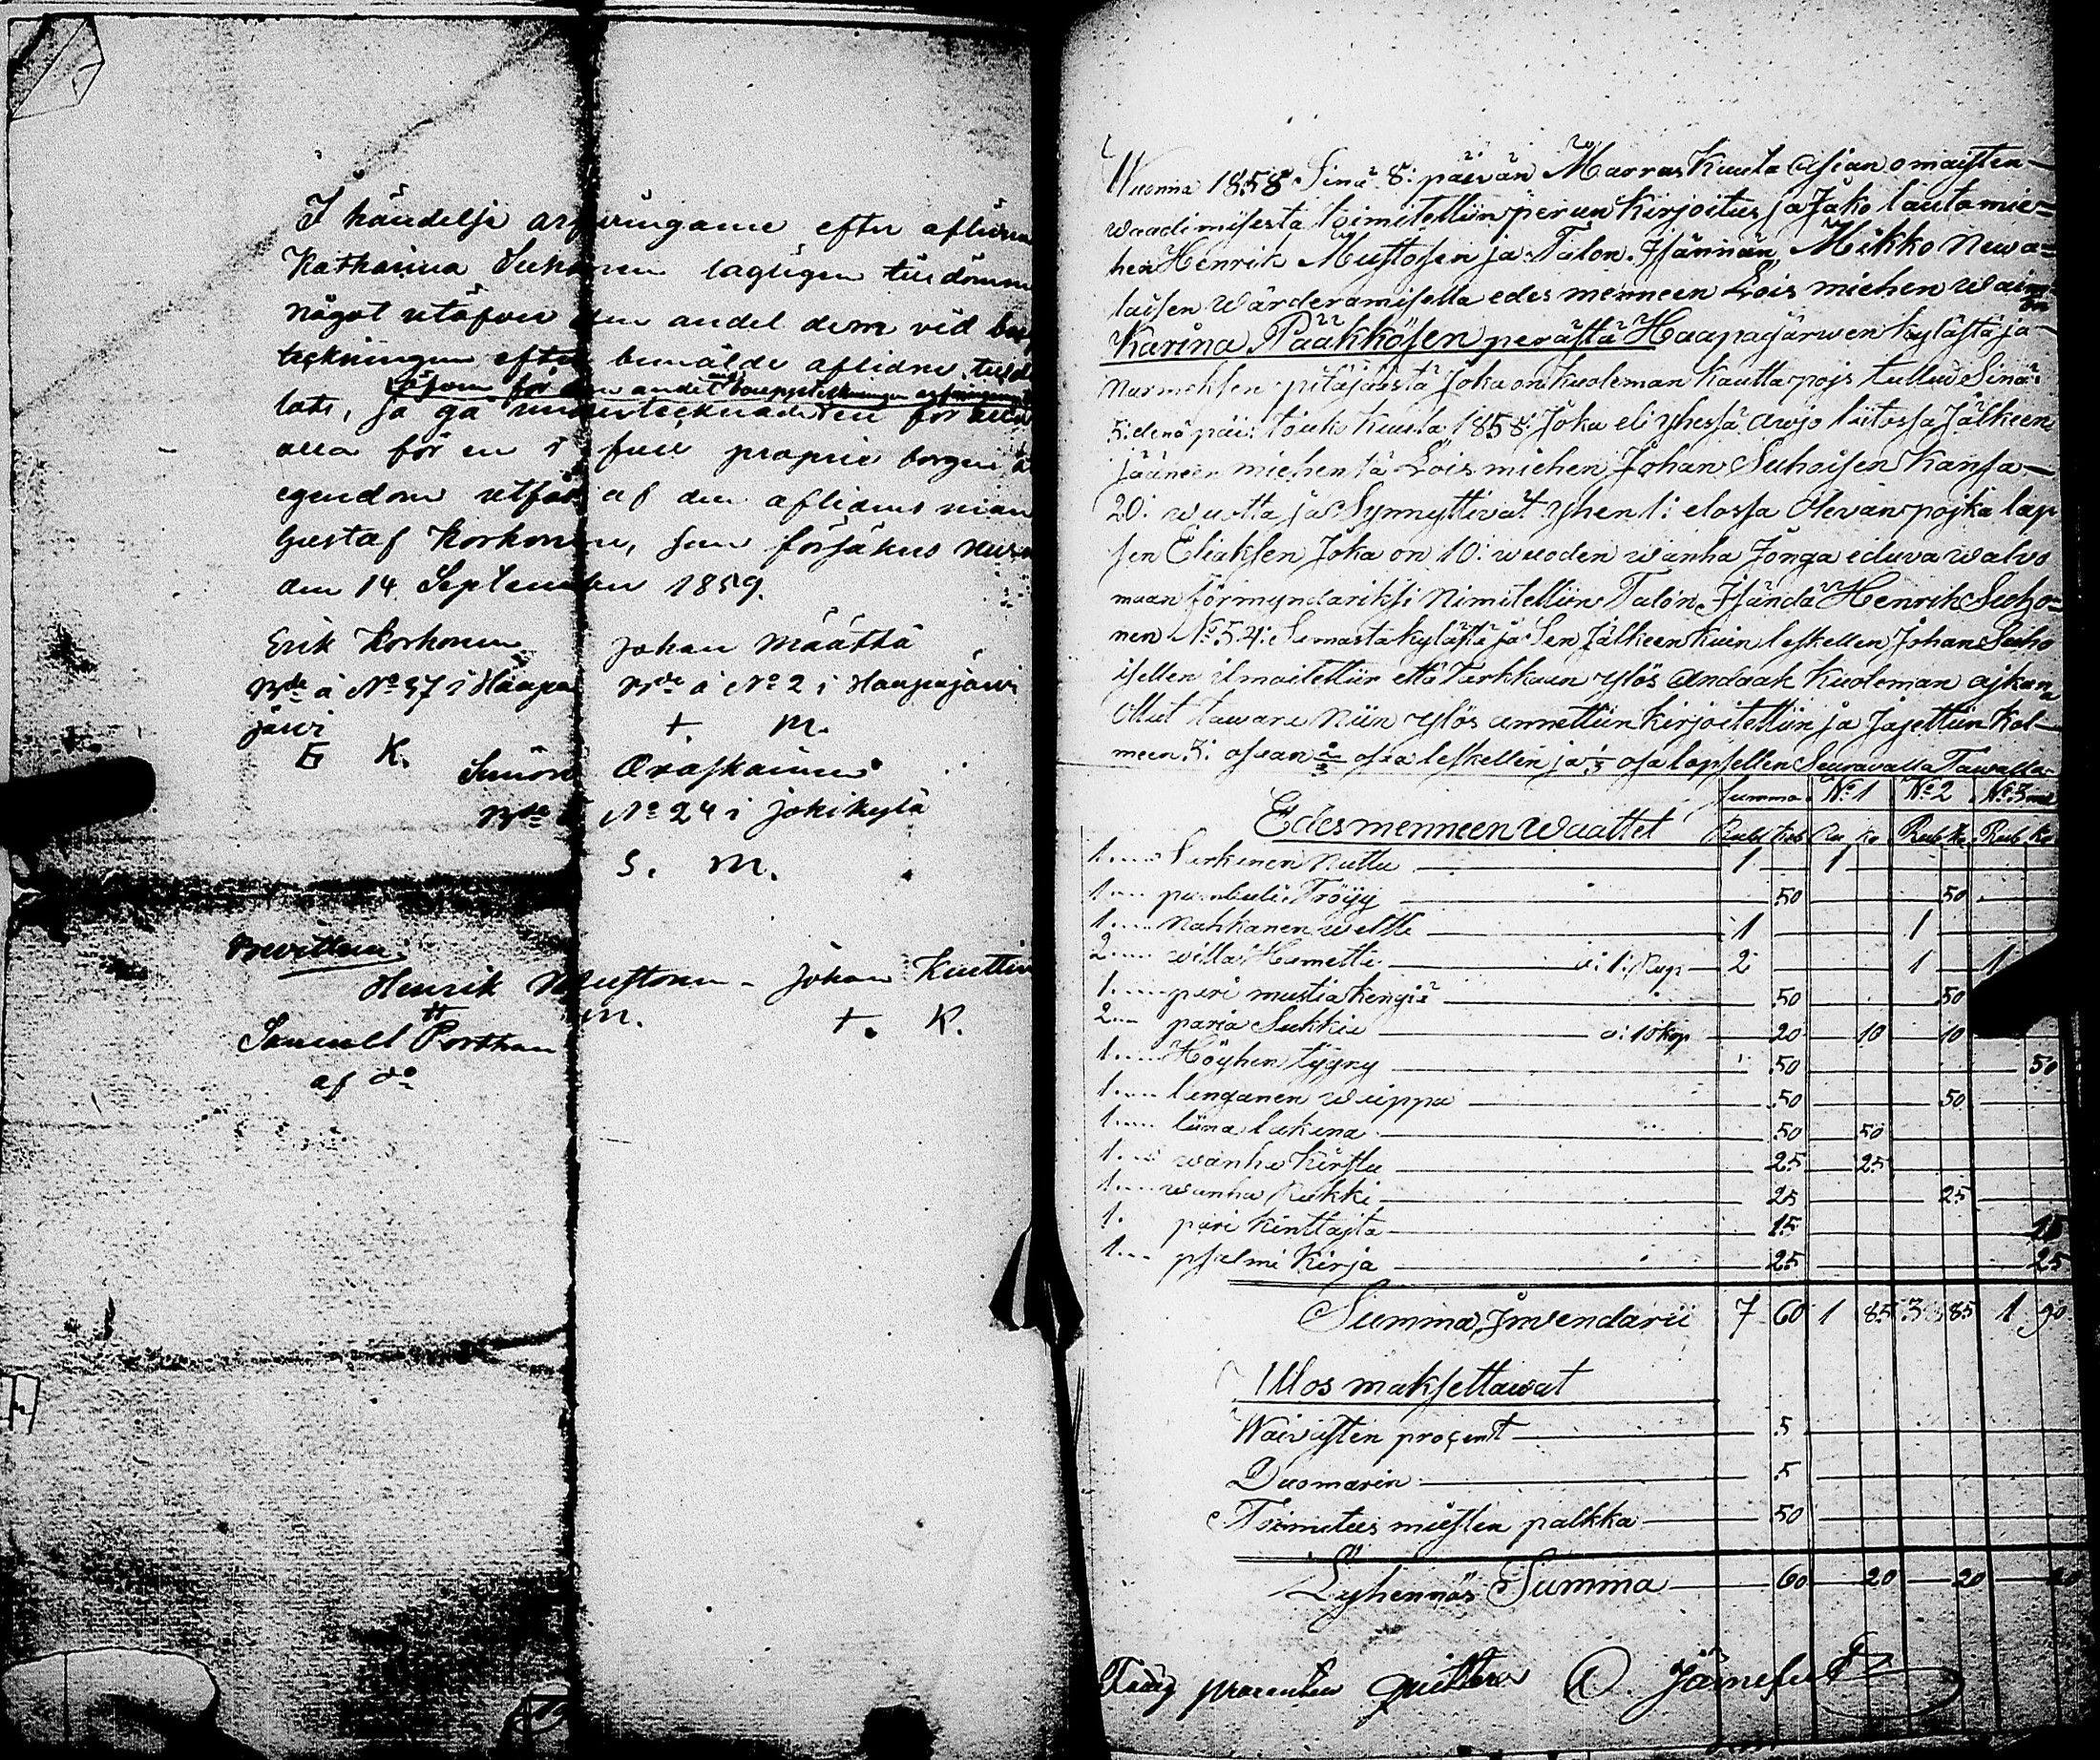 I händelse arfvingarne efter aflidna
Katharina Suhonen lagligen tildömm
något utöfver den andel dem vid boup
teckningen efter bemälde aflidne tilde
såsom för den andel bouppteckningen
lats, så gå undertecknade en för alla
alla för en i full proprie borgen
egendom utfås af den aflidnes man
Gustaf Korhonen, som försäkras
den 14 September 1859.
Erik Korhonen Johan Määttä
Bde å No 37 i Haapa Bde å No 2 i Haapajärvi
järvi
E K. + M.
Simon Oraskainen
Bde å No 24 i Jokikylä
S. M.
Bevittna:
Henrik Mustonen Johan Kuttin
H M. + K.
Samuel Porthan
af do
Wuonna 1858 Sinä 8: päivän Marras Kuuta Asian omaisten
waadimisesta toimitettiin perun kirjoitus ja Jako lautamie-
hen Henrik Mustosen ja Talon Isännän Mikko Newa-
laisen wärderamisella edes menneen Lois miehen waimon
Karina Pääkkösen perästä Haapajärwen kylästä ja
Nurmeksen pitäjästä Joka on kuoleman kautta pojs tullud Sinä
5:denä päi: touko kuuta 1858: Joka eli yhessä awjo liitossa Jälkeen
Jääneen miehensä Lois miehen Johan Suhoisen kansa
20: wuotta ja Synnyttivät yhen 1: elossa Olevan pojka lap
sen Eliaksen Joka on 10: wuoden wanha Jonga eduva walvo
maan förmyndariksi Nimitettiin Talon Isändä Henrik Suho-
nen No 54: Samasta kylästä ja Sen Jälkeen kuin leskellen Johan Suho
isellen ilmoitettiin että Tarkkaan ylös Andaak kuoleman ajkana
Ollut tawara Niin ylös annettiin kirjoitettiin ja Jajettiin kol-
meen 3: osaan 2/3 osaa leskellen ja 1/3 osa lapsellen Seuravalla Tawalla
Summa No 1 No 2 No 3
Edesmenneen Waattet Rubl Kop Ru Ko Rub Ko Rub Ko
1 Sarkanen Nuttu 1 1
1 Tröyy 50 50
1 Nahkanen weltti 1 1
2 willa Hametta a: 1: Rup 2 1 1
1 pari mustia kengiä 50 50
2 paria Sukkia a: 10 kop 20 10 10
1 Höyhen tyyny 50 50
1 langanen waippa 50 50
1 liina lakana 50 50
1 wanha kirstu 25 25
1 wanha Rukki 25 25
1 pari kinttajta 15 15
1 psalmi Kirja 25 25
Summa Inwendarii 7 60 1 85 3 85 1 90
Ulos maksettawat
Waivasten procent 5
Duomarin 5
Toimitus miesten palkka 50
Lyhennös Summa 60 20 20 20
Fattig procenten quitteras Järnefelt